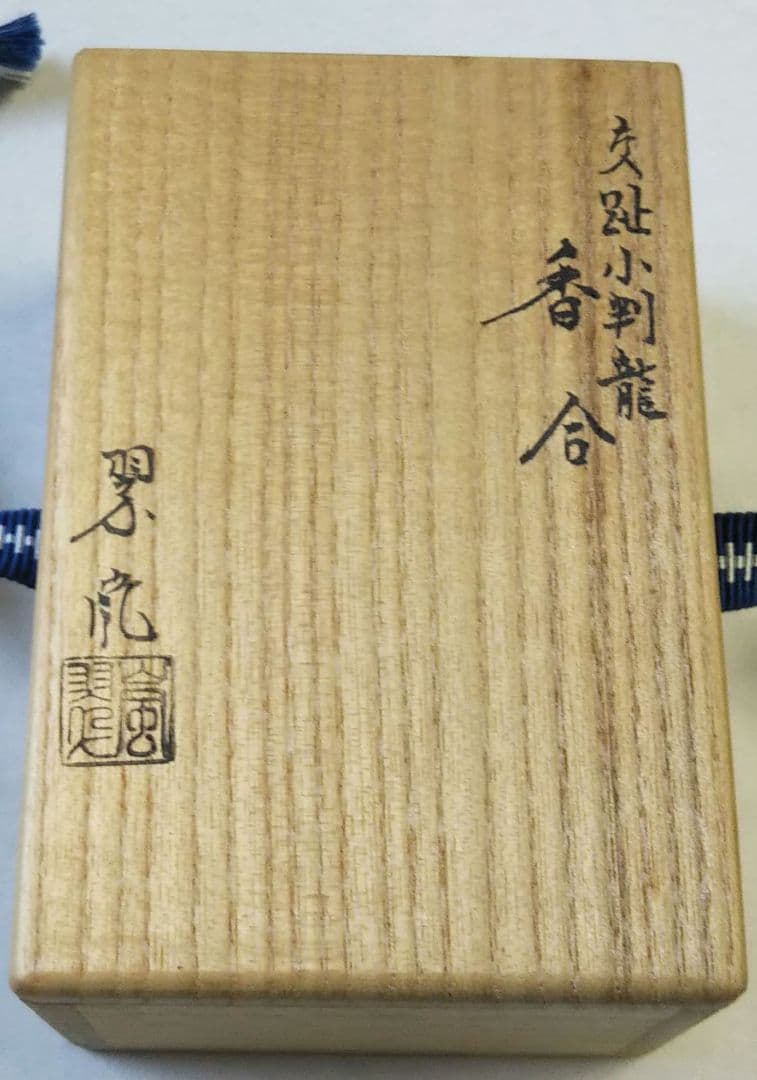 交趾小判龍
香合
翠嵐